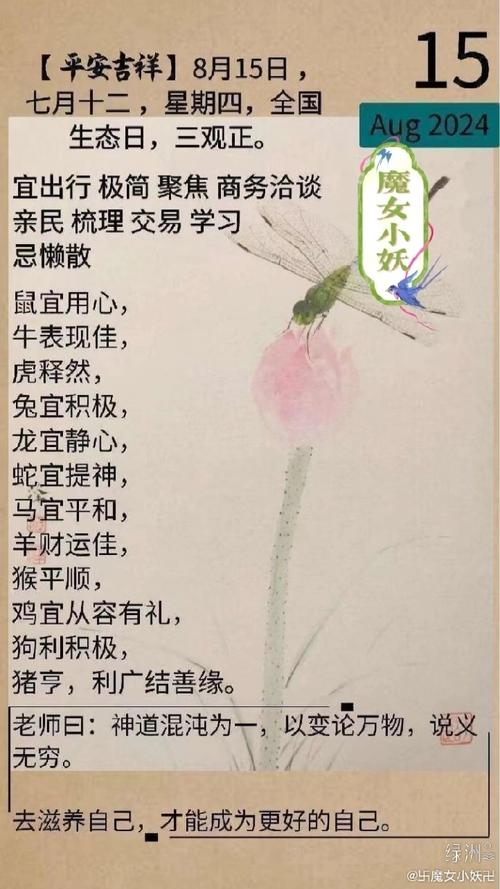 【平安吉祥】8月15日，
七月十二，星期四，全国
生态日，三观正。
15
Aug 2024
魔女小妖
宜出行 极简 聚焦 商务洽谈
亲民 梳理 交易 学习
忌懒散
鼠宜用心，
牛表现佳，
虎释然，
兔宜积极，
龙宜静心，
蛇宜提神，
马宜平和，
羊财运佳，
猴平顺，
鸡宜从容有礼，
狗利积极，
猪亨，利广结善缘。
老师曰：神道混沌为一，以变论万物，说义
无穷。
去滋养自己，才能成为更好的自己。
绿洲
@卐魔女小妖卍